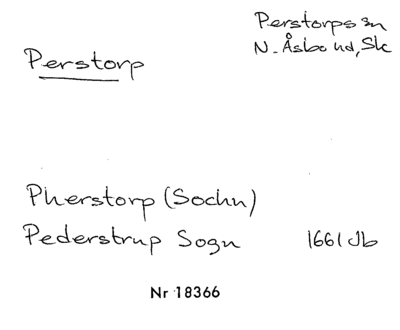 Perstorps sn
N. Åsbo hd, Sk
Perstorp
Pherstorp (Sochn)
Pederstrup Sogn 1661 Jb
Nr 18366